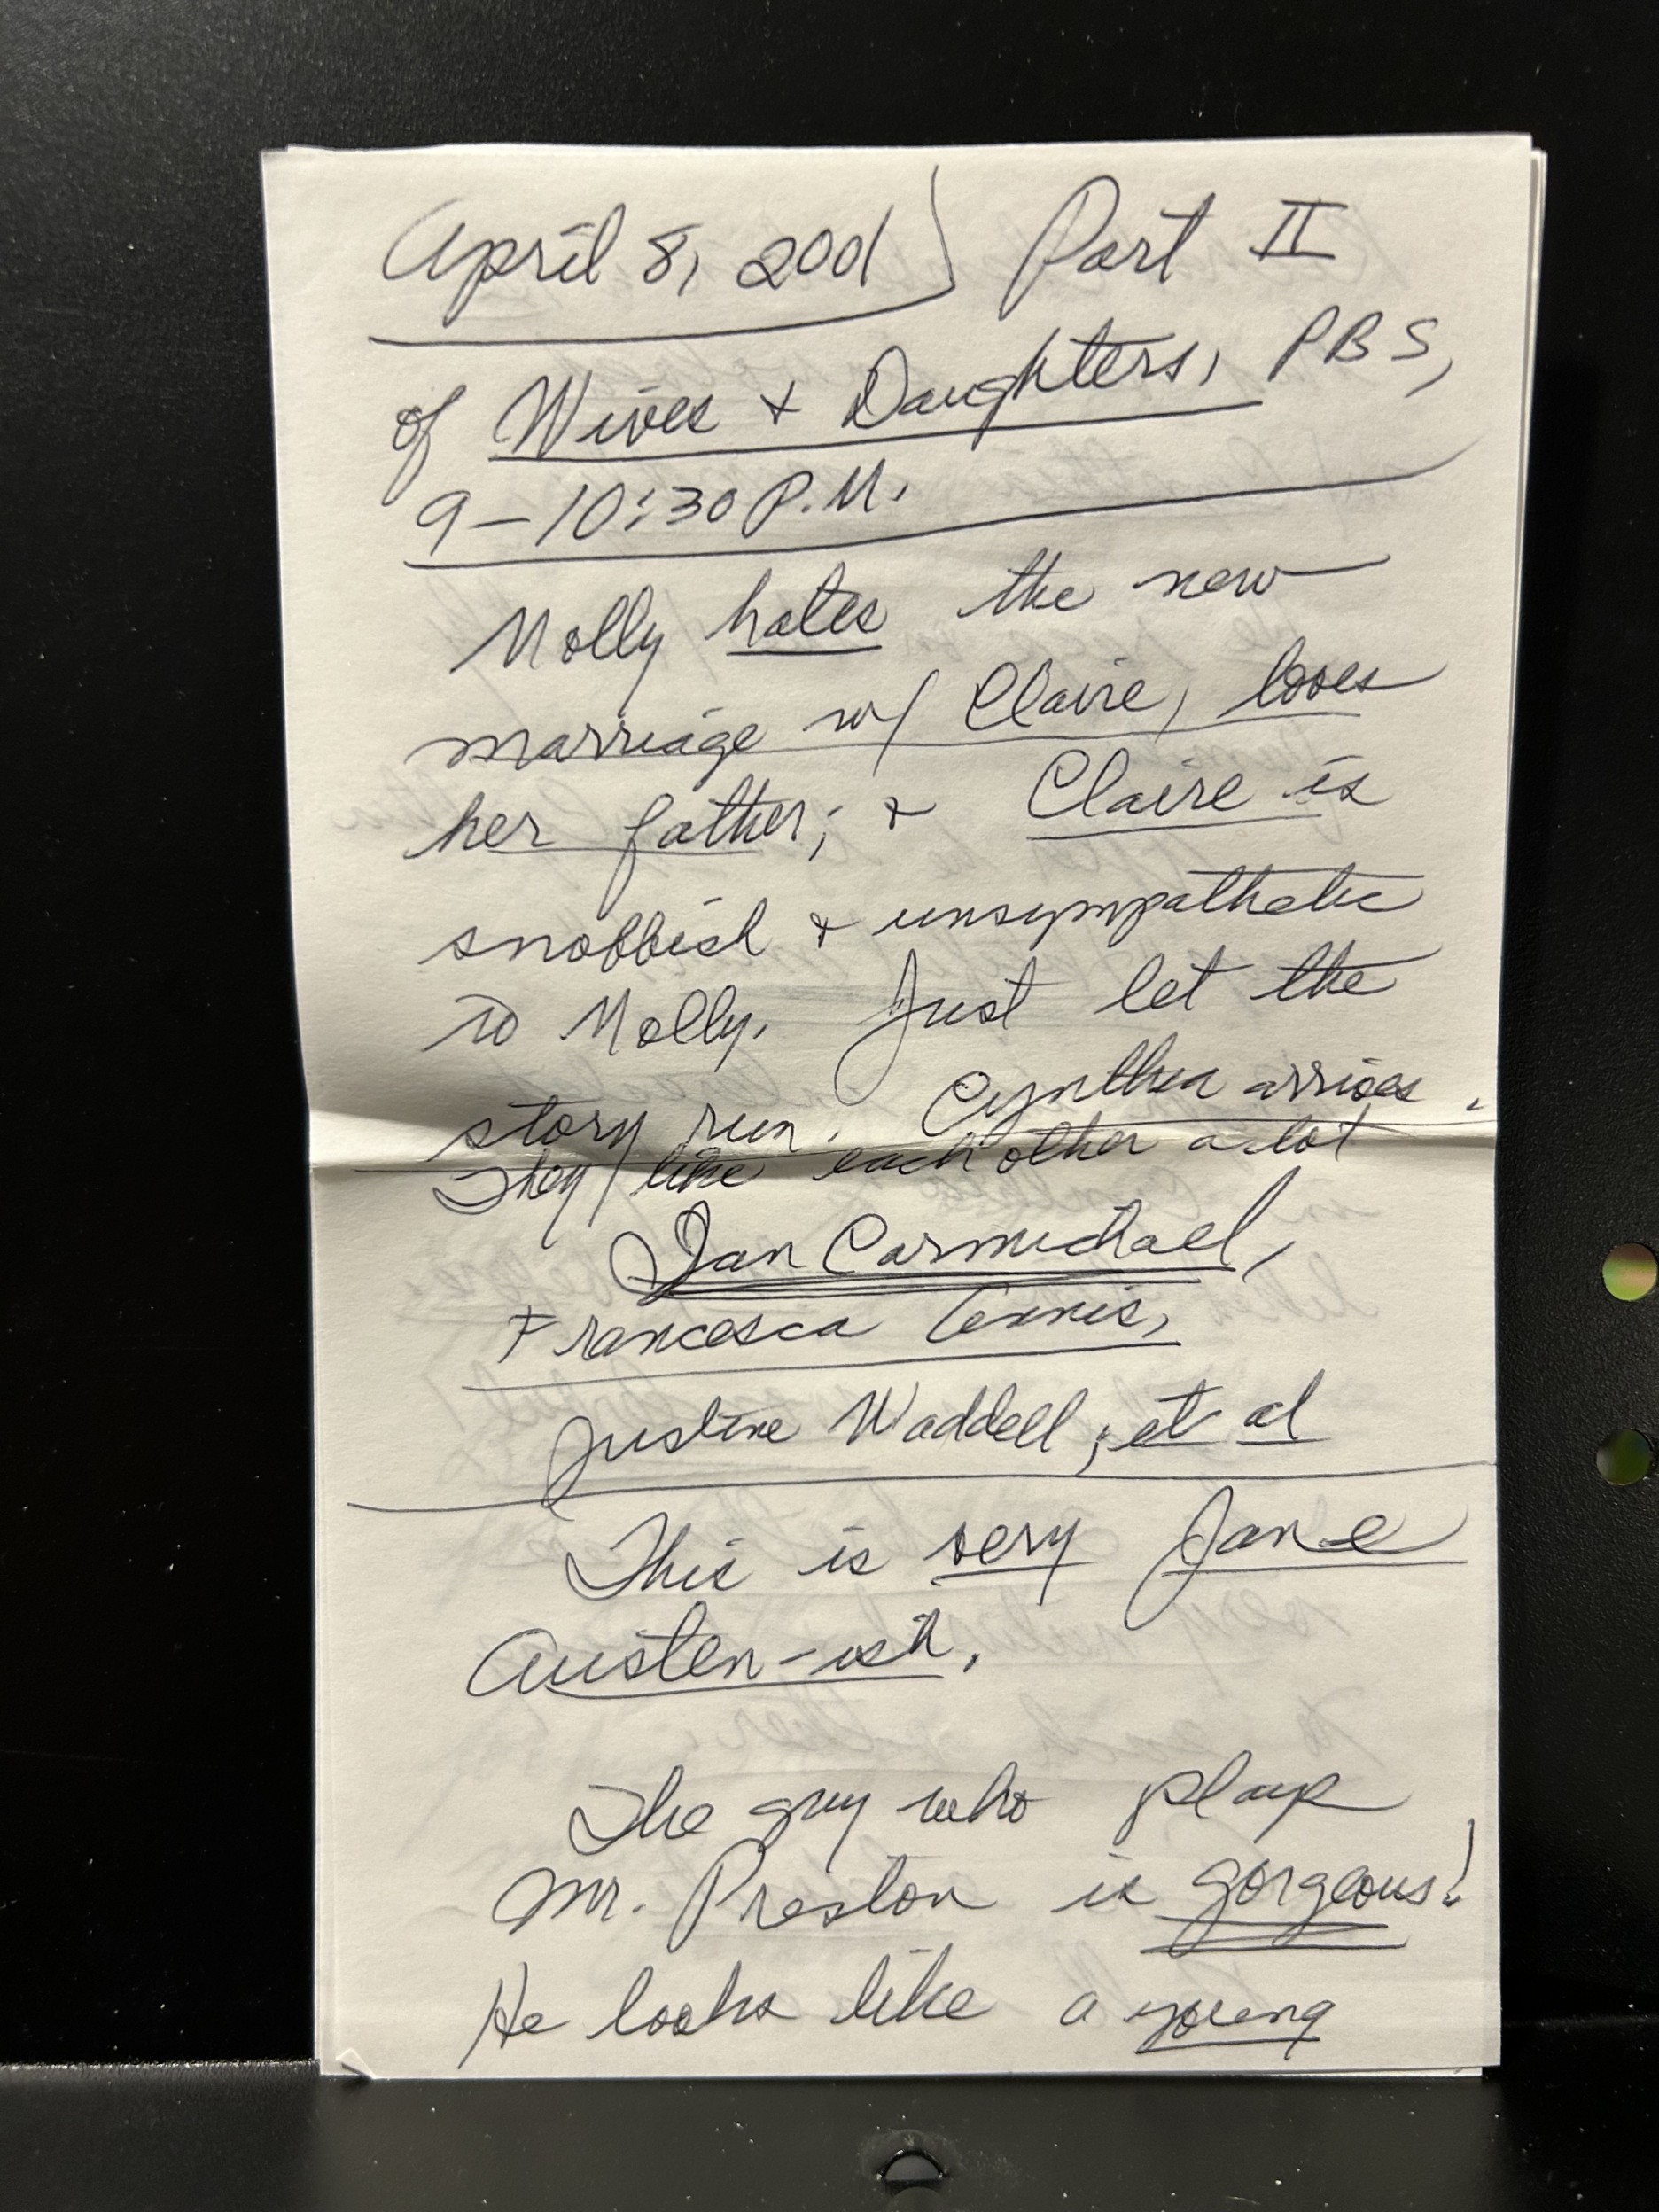 April 8, 2001) Part II
of Wives + Daughters, PBS,
9-10:30 P.M.
Molly hates the new
marriage w/ Claire, loves
her father; + Claire is
snobbish + unsympathetic
to Molly. Just let the
story run. Cynthia arrives.
They like each other a lot
Ian Carmichael,
Francesca Annis,
Justine Waddell, et al
This is very Jane
Austen-ish.
The guy who plays
Mr. Preston is gorgeous!
He looks like a young